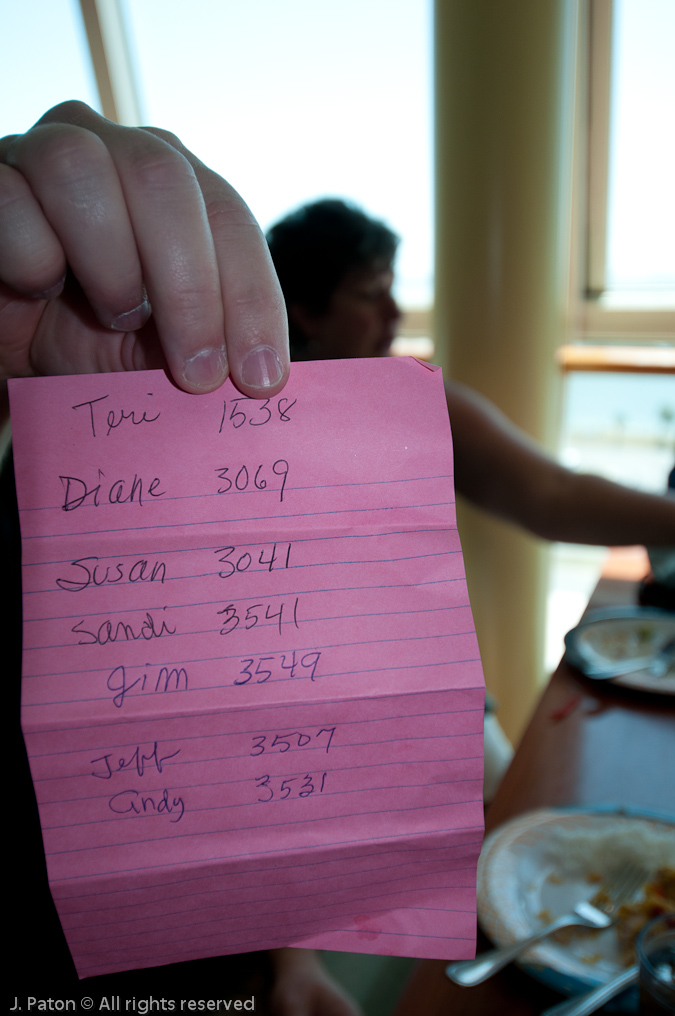 Teri 1538
Diane 3069
Susan 3041
Sandi 3541
Jim 3549
Jeff 3507
Andy 3531
J. Paton © All rights reserved